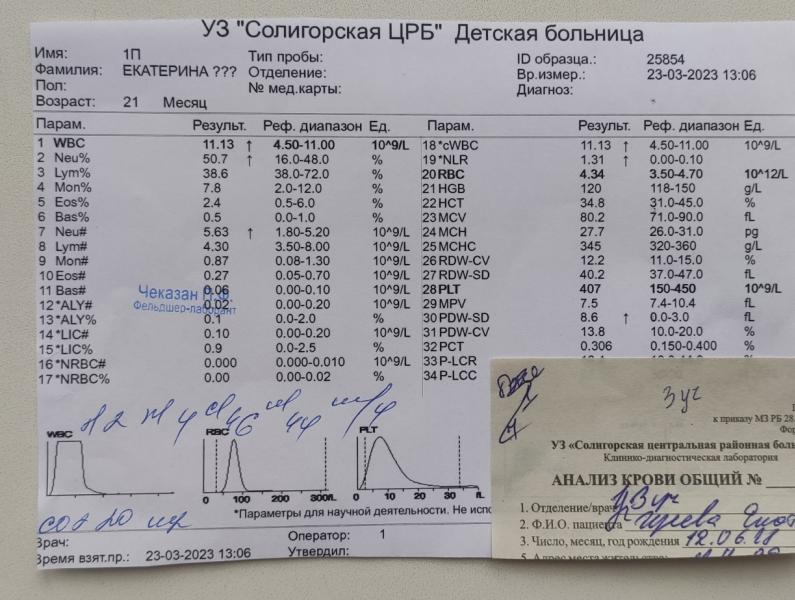 УЗ "Солигорская ЦРБ" Детская больница
Имя: 1П Тип пробы: ID образца.: 25854
Фамилия: ЕКАТЕРИНА ??? Отделение: Вр.измер.: 23-03-2023 13:06
Пол: № мед.карты: Диагноз:
Возраст: 21 Месяц
Парам. Результ. Реф. диапазон Ед. Парам. Результ. Реф. диапазон Ед.
1 WBC 11.13 ↑ 4.50-11.00 10^9/L 18 *cWBC 11.13 ↑ 4.50-11.00 10^9/L
2 Neu% 50.7 ↑ 16.0-48.0 % 19 *NLR 1.31 ↑ 0.00-0.10
3 Lym% 38.6 38.0-72.0 % 20 RBC 4.34 3.50-4.70 10^12/L
4 Mon% 7.8 2.0-12.0 % 21 HGB 120 118-150 g/L
5 Eos% 2.4 0.5-6.0 % 22 HCT 34.8 31.0-45.0 %
6 Bas% 0.5 0.0-1.0 % 23 MCV 80.2 71.0-90.0 fL
7 Neu# 5.63 ↑ 1.80-5.20 10^9/L 24 MCH 27.7 26.0-31.0 pg
8 Lym# 4.30 3.50-8.00 10^9/L 25 MCHC 345 320-360 g/L
9 Mon# 0.87 0.08-1.30 10^9/L 26 RDW-CV 12.2 11.0-15.0 %
10 Eos# 0.27 0.05-0.70 10^9/L 27 RDW-SD 40.2 37.0-47.0 fL
11 Bas# 0.06 0.00-0.10 10^9/L 28 PLT 407 150-450 10^9/L
Чеказан
12 *ALY# 0.02 0.00-0.20 10^9/L 29 MPV 7.5 7.4-10.4 fL
Фельдшер-лаборант
13 *ALY% 0.1 0.0-2.0 % 30 PDW-SD 8.6 ↑ 0.0-3.0 fL
14 *LIC# 0.10 0.00-0.20 10^9/L 31 PDW-CV 13.8 10.0-20.0 %
15 *LIC% 0.9 0.0-2.5 % 32 PCT 0.306 0.150-0.400 %
16 *NRBC# 0.000 0.000-0.010 10^9/L 33 P-LCR
17 *NRBC% 0.00 0.00-0.02 % 34 P-LCC
WBC RBC PLT
0 100 200 300 fL 0 10 20 30 fL
*Параметры для научной деятельности. Не испо
соэ 20
Врач: Оператор: 1
Время взят.пр.: 23-03-2023 13:06 Утвердил:
3 уч
к приказу МЗ РБ 28.
Фор
УЗ «Солигорская центральная районная боль
Клинико-диагностическая лаборатория
АНАЛИЗ КРОВИ ОБЩИЙ №
1. Отделение/врач 3 уч
2. Ф.И.О. пациента
3. Число, месяц, год рождения 12.06.21
5. Адрес места жительства: